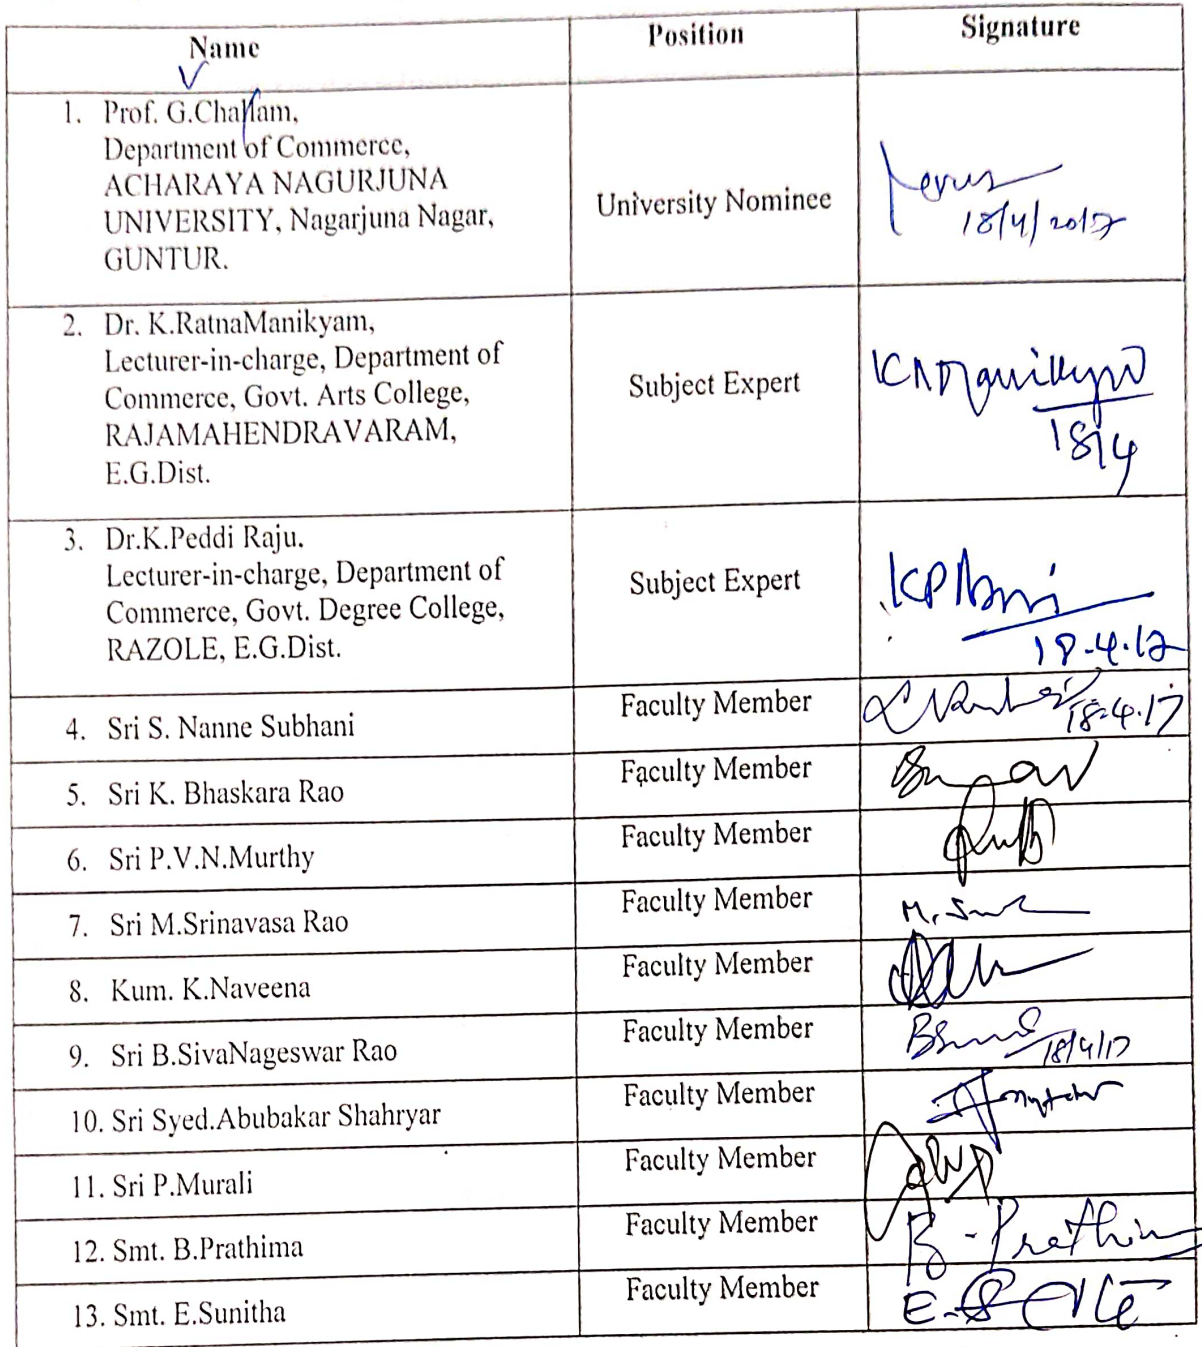 Name Position Signature
1. Prof. G.Challam,
Department of Commerce,
ACHARAYA NAGURJUNA
UNIVERSITY, Nagarjuna Nagar,
GUNTUR.
University Nominee
18/4/2017
2. Dr. K.RatnaManikyam,
Lecturer-in-charge, Department of
Commerce, Govt. Arts College,
RAJAMAHENDRAVARAM,
E.G.Dist.
Subject Expert
18/4
3. Dr.K.Peddi Raju.
Lecturer-in-charge, Department of
Commerce, Govt. Degree College,
RAZOLE, E.G.Dist.
Subject Expert
18.4.17
4. Sri S. Nanne Subhani Faculty Member 18.4.17
5. Sri K. Bhaskara Rao Faculty Member
6. Sri P.V.N.Murthy Faculty Member
7. Sri M.Srinavasa Rao Faculty Member
8. Kum. K.Naveena Faculty Member
9. Sri B.SivaNageswar Rao Faculty Member 18/4/17
10. Sri Syed.Abubakar Shahryar Faculty Member
11. Sri P.Murali Faculty Member
12. Smt. B.Prathima Faculty Member B-Prathima
13. Smt. E.Sunitha Faculty Member